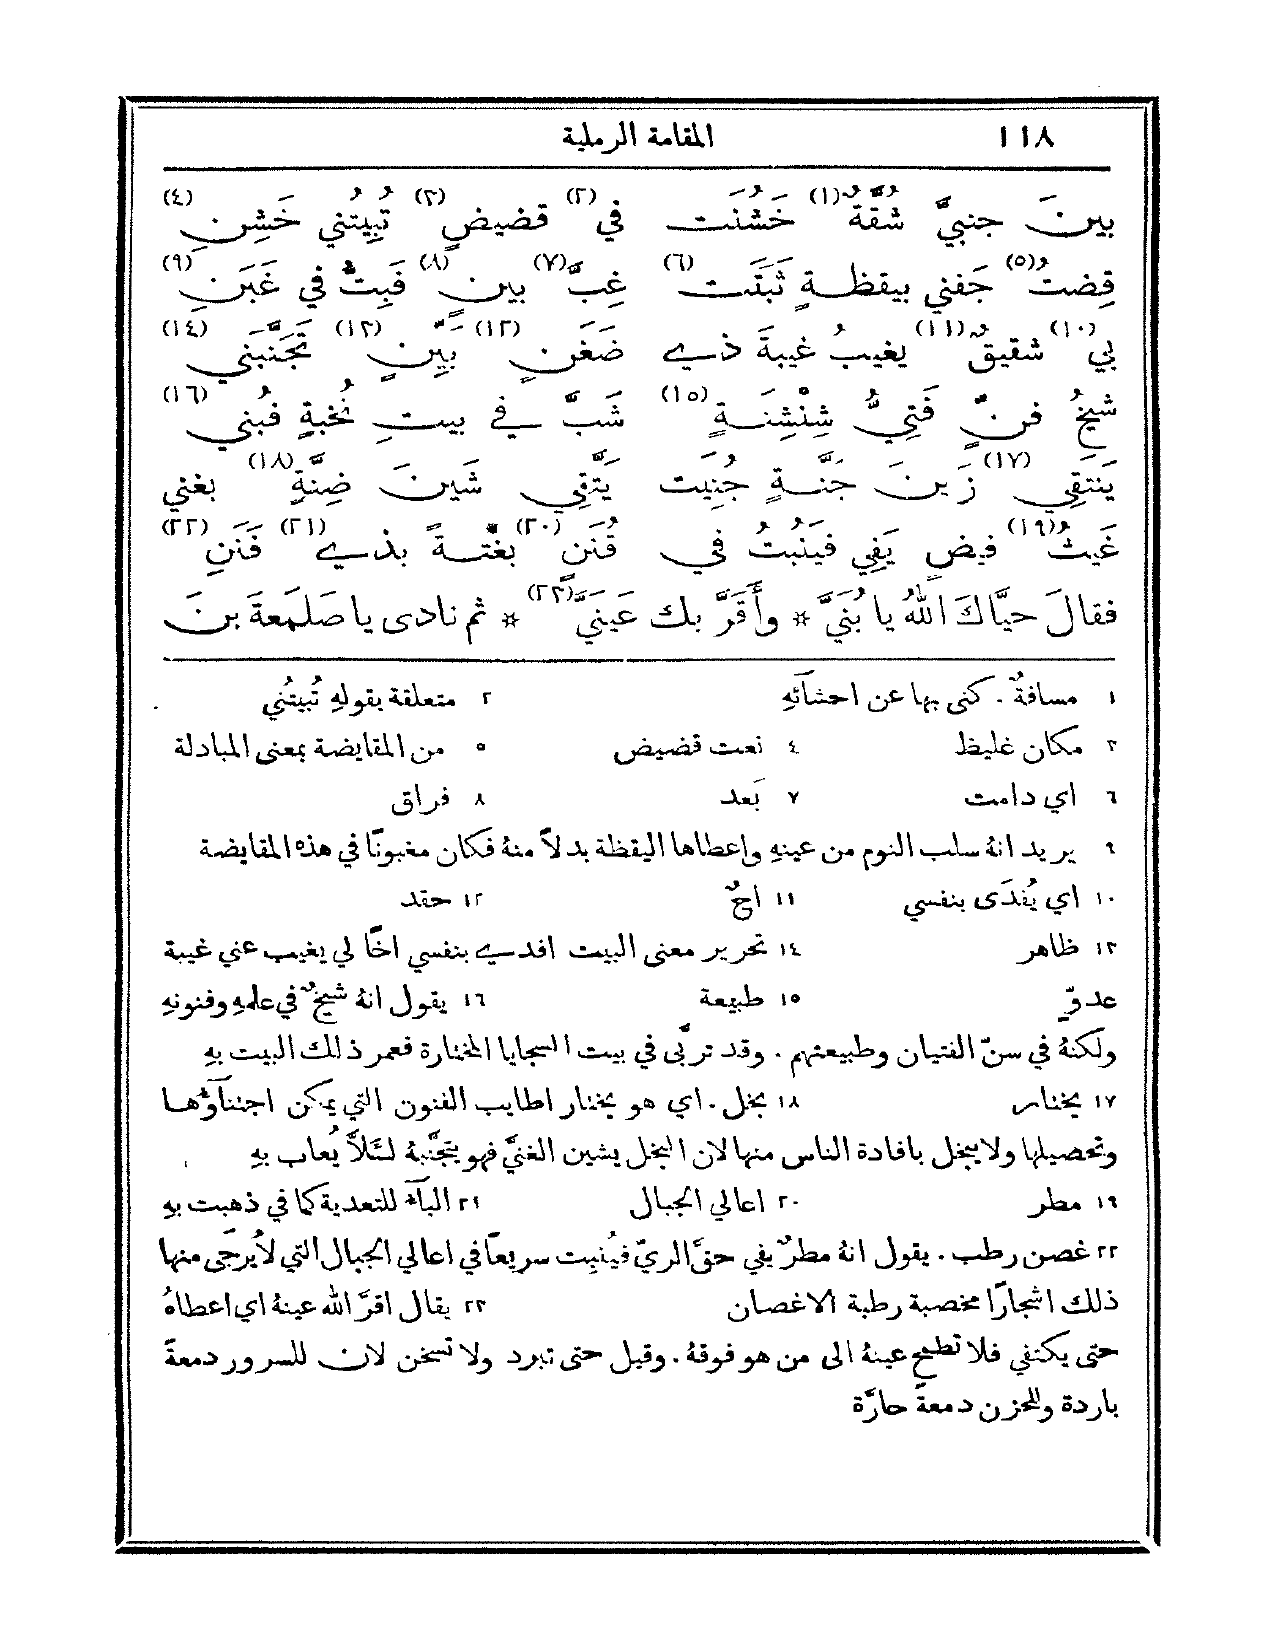 ١١٨ المقامة الرملية
بينَ جنبيَّ شقَّةٌ (١) خَشُنَت في (٢) قضيضٍ (٣) تُبِيتُني خَشِنِ (٤)
قِضتُ (٥) جَفني بيقظةٍ ثَبَتَت (٦) غِبَّ (٧) بينٍ (٨) فَبِتُّ في غَبَنِ (٩)
لي (١٠) شقيقٌ (١١) يغيبُ غيبةَ ذي ضَغَنٍ (١٢) بَيِّنٍ (١٣) تَجَنَّبَني (١٤)
شيخُ فنٍّ فَتِيُّ شِنْشِنَةٍ (١٥) شَبَّ في بيتِ نُخبةٍ فبُني (١٦)
يَنتقِي (١٧) زَينَ جَنَّةٍ جُنِيَت يتَّقِي شَينَ ضِنَّةٍ (١٨) بغَني
غيثُ (١٩) فيضٍ يَفِي فيُنبِتُ في قُنَنٍ (٢٠) بغتةً بذي (٢١) فَنَنِ (٢٢)
فقالَ حيَّاكَ اللهُ يا بُنَيَّ * وأَقَرَّ بك عينَيَّ (٢٣) * ثم نادى يا صَلمَعةَ بنَ
١ مسافةٌ . كنى بها عن احشآئهِ ٢ متعلقة بقولهِ تُبيتُني
٣ مكان غليظ ٤ نعت قضيض ٥ من المقايضة بمعنى المبادلة
٦ اي دامت ٧ بَعد ٨ فراق
٩ يريد انهُ سلب النوم من عينهِ واعطاها اليقظة بدلاً منهُ فكان مغبونًا في هذه المقايضة
١٠ اي يُفدَى بنفسي ١١ اخٌ ١٢ حقد
١٣ ظاهر ١٤ تحرير معنى البيت افدي بنفسي اخًا لي يغيب عني غيبة
عدوٍّ ١٥ طبيعة ١٦ يقول انهُ شيخٌ في علمهِ وفنونهِ
ولكنهُ في سنّ الفتيان وطبيعتهم . وقد تربَّى في بيت السجايا المختارة فعمر ذلك البيت بهِ
١٧ يختار ١٨ بخل . اي هو يختار اطايب الفنون التي يمكن اجتنآؤها
وتحصيلها ولا يبخل بافادة الناس منها لان البخل يشين الغنيَّ فهو يتجنَّبهُ لئلاَّ يُعاب بهِ
١٩ مطر ٢٠ اعالي الجبال ٢١ البآء للتعدية كما في ذهبت بهِ
٢٢ غصن رطب . يقول انهُ مطرٌ يفي حقَّ الريّ فيُنبِت سريعًا في اعالي الجبال التي لا يُرجَى منها
ذلك اشجارًا مخصبة رطبة الاغصان ٢٣ يقال اقرَّ الله عينهُ اي اعطاهُ
حتى يكتفي فلا تطمح عينهُ الى من هو فوقهُ . وقيل حتى تبرد ولا تسخن لان للسرور دمعةً
باردة وللحزن دمعةً حارَّة